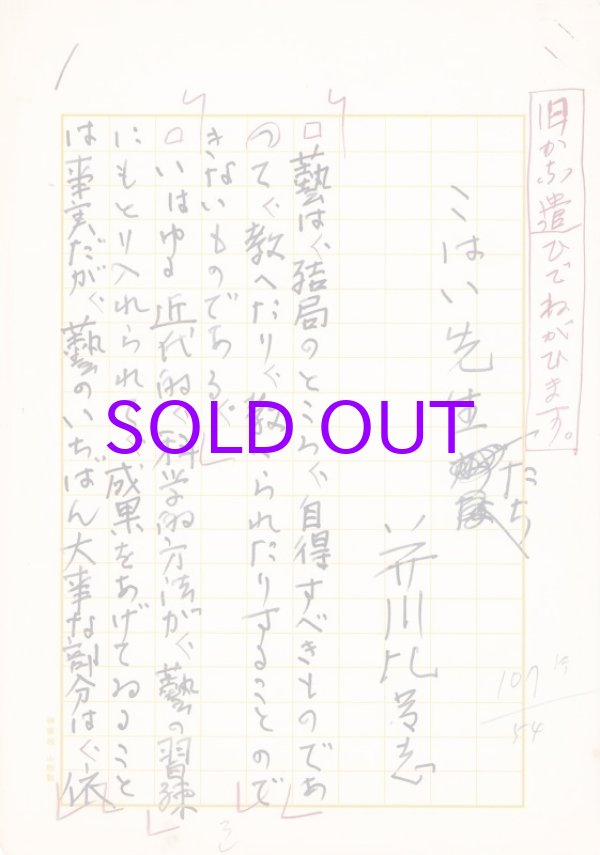 旧かな遣ひでねがひます。
こはい先生たち
芥川比呂志
藝は結局のところ自得すべきものであ
つて教へたり教へられたりすることので
きないものである
いはゆる近代的科学的方法が藝の習練
にもとり入れられて、成果をあげてゐること
は事実だが藝のいちばん大事な部分は依
107
54
SOLD OUT